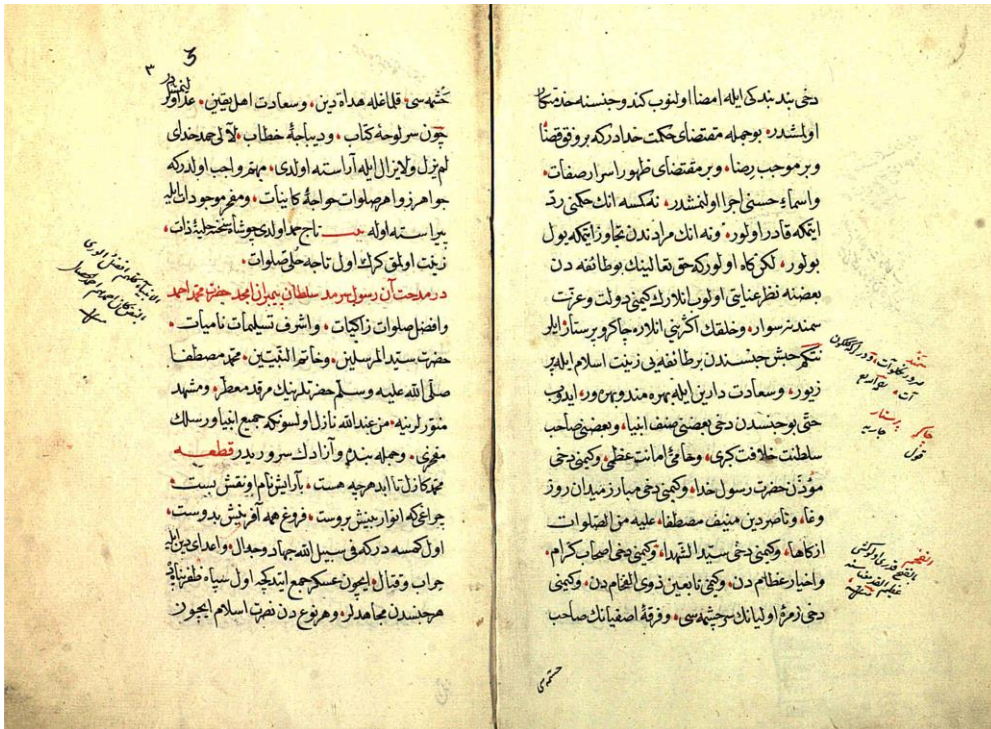 دخی بند بندکی ایله امضا اولنوب کندو جنسنه خدمتکار
اولمشدر بو جمله مقتضای حکمت خدادرکه بر وفق قضا
و بر موجب رضا و بر مقتضای ظهور اسرار صفات
و اسماء حسنی اجرا اولنمشدر نه کمسه انك حکمنی ردّ
ایتمکه قادر اولور و نه انك مرادندن تجاوز ایتمکه یول
بولور لکن کاه اولورکه حق تعالینك بو طائفه دن
بعضنه نظر عنایتی اولوب انلارك کیمنی دولت و عزت
سمندنه سوار و خلقك اکثرینی انلاره چاکر و پرستار ایلر
نتکم حبش جنسندن بر طائفه یی زینت اسلام ایله پر
زیور و سعادت دارین ایله بهره مند و بهره ور ایدوب
حتی بو جنسدن دخی بعضنی صنف انبیا و بعضنی صاحب
سلطنت خلافت کبری و حامئ امانت عظمی و کیمنی دخی
مؤذن حضرت رسول خدا و کیمنی دخی مبارز میدان روز
وغا و ناصر دین منیف مصطفا علیه من الصلوات
ازکاها و کیمنی دخی سیّد الشهدا و کیمنی دخی اصحاب کرام
و اخیار عظام دن و کیمنی تابعین ذوی الفخام دن و کیمنی
دخی زمره اولیانك سرچشمه سی و فرقۀ اصفیانك صاحب
چشمه سی
سمند
پرستار
جاریه
چاکر
قول
التفخیم
3
٣
چشمه سی قلماغله هداة دین و سعادت اهل یقین
چون سر لوحۀ کتاب و دیباجۀ خطاب لآلی حمد خدای
لم یزل و لا یزال ایله آراسته اولدی مهم و واجب اولدرکه
جواهر زواهر صلوات خواجۀ کاینات و مفخر موجودات ایله
پیراسته اوله بیت تاج حمد اولدی چو شاه سخنه حلیۀ ذات
زینت اولمق کرك اول تاجه حلیّ صلوات
در مدحت آن رسول سرمد سلطان پیمبران امجد حضرت محمد احمد
و افضل صلوات زاکیات و اشرف تسلیمات نامیات
حضرت سیّد المرسلین و خاتم النبیّین محمد مصطفا
صلّی الله علیه و سلّم حضرتلرینك مرقد معطر و مشهد
منوّرلرینه من عند الله نازل اولسونکه جمیع انبیا و رسلك
مفخری و جمله بنده و آزادك سروریدر قطعه
محمد کازل تا ابد هرچه هست بآرایش نام او نقش بست
چراغی که انوار بینش بروست فروغ همه آفرینش بدوست
اول کمسه درکه فی سبیل الله جهاد و جدال و اعدای دین ایله
حراب و قتال ایچون عسکر جمع ایتدکجه اول سپاه ظفرپناهه
هر جنسدن مجاهدلر و هر نوع دن نصرت اسلام ایچون